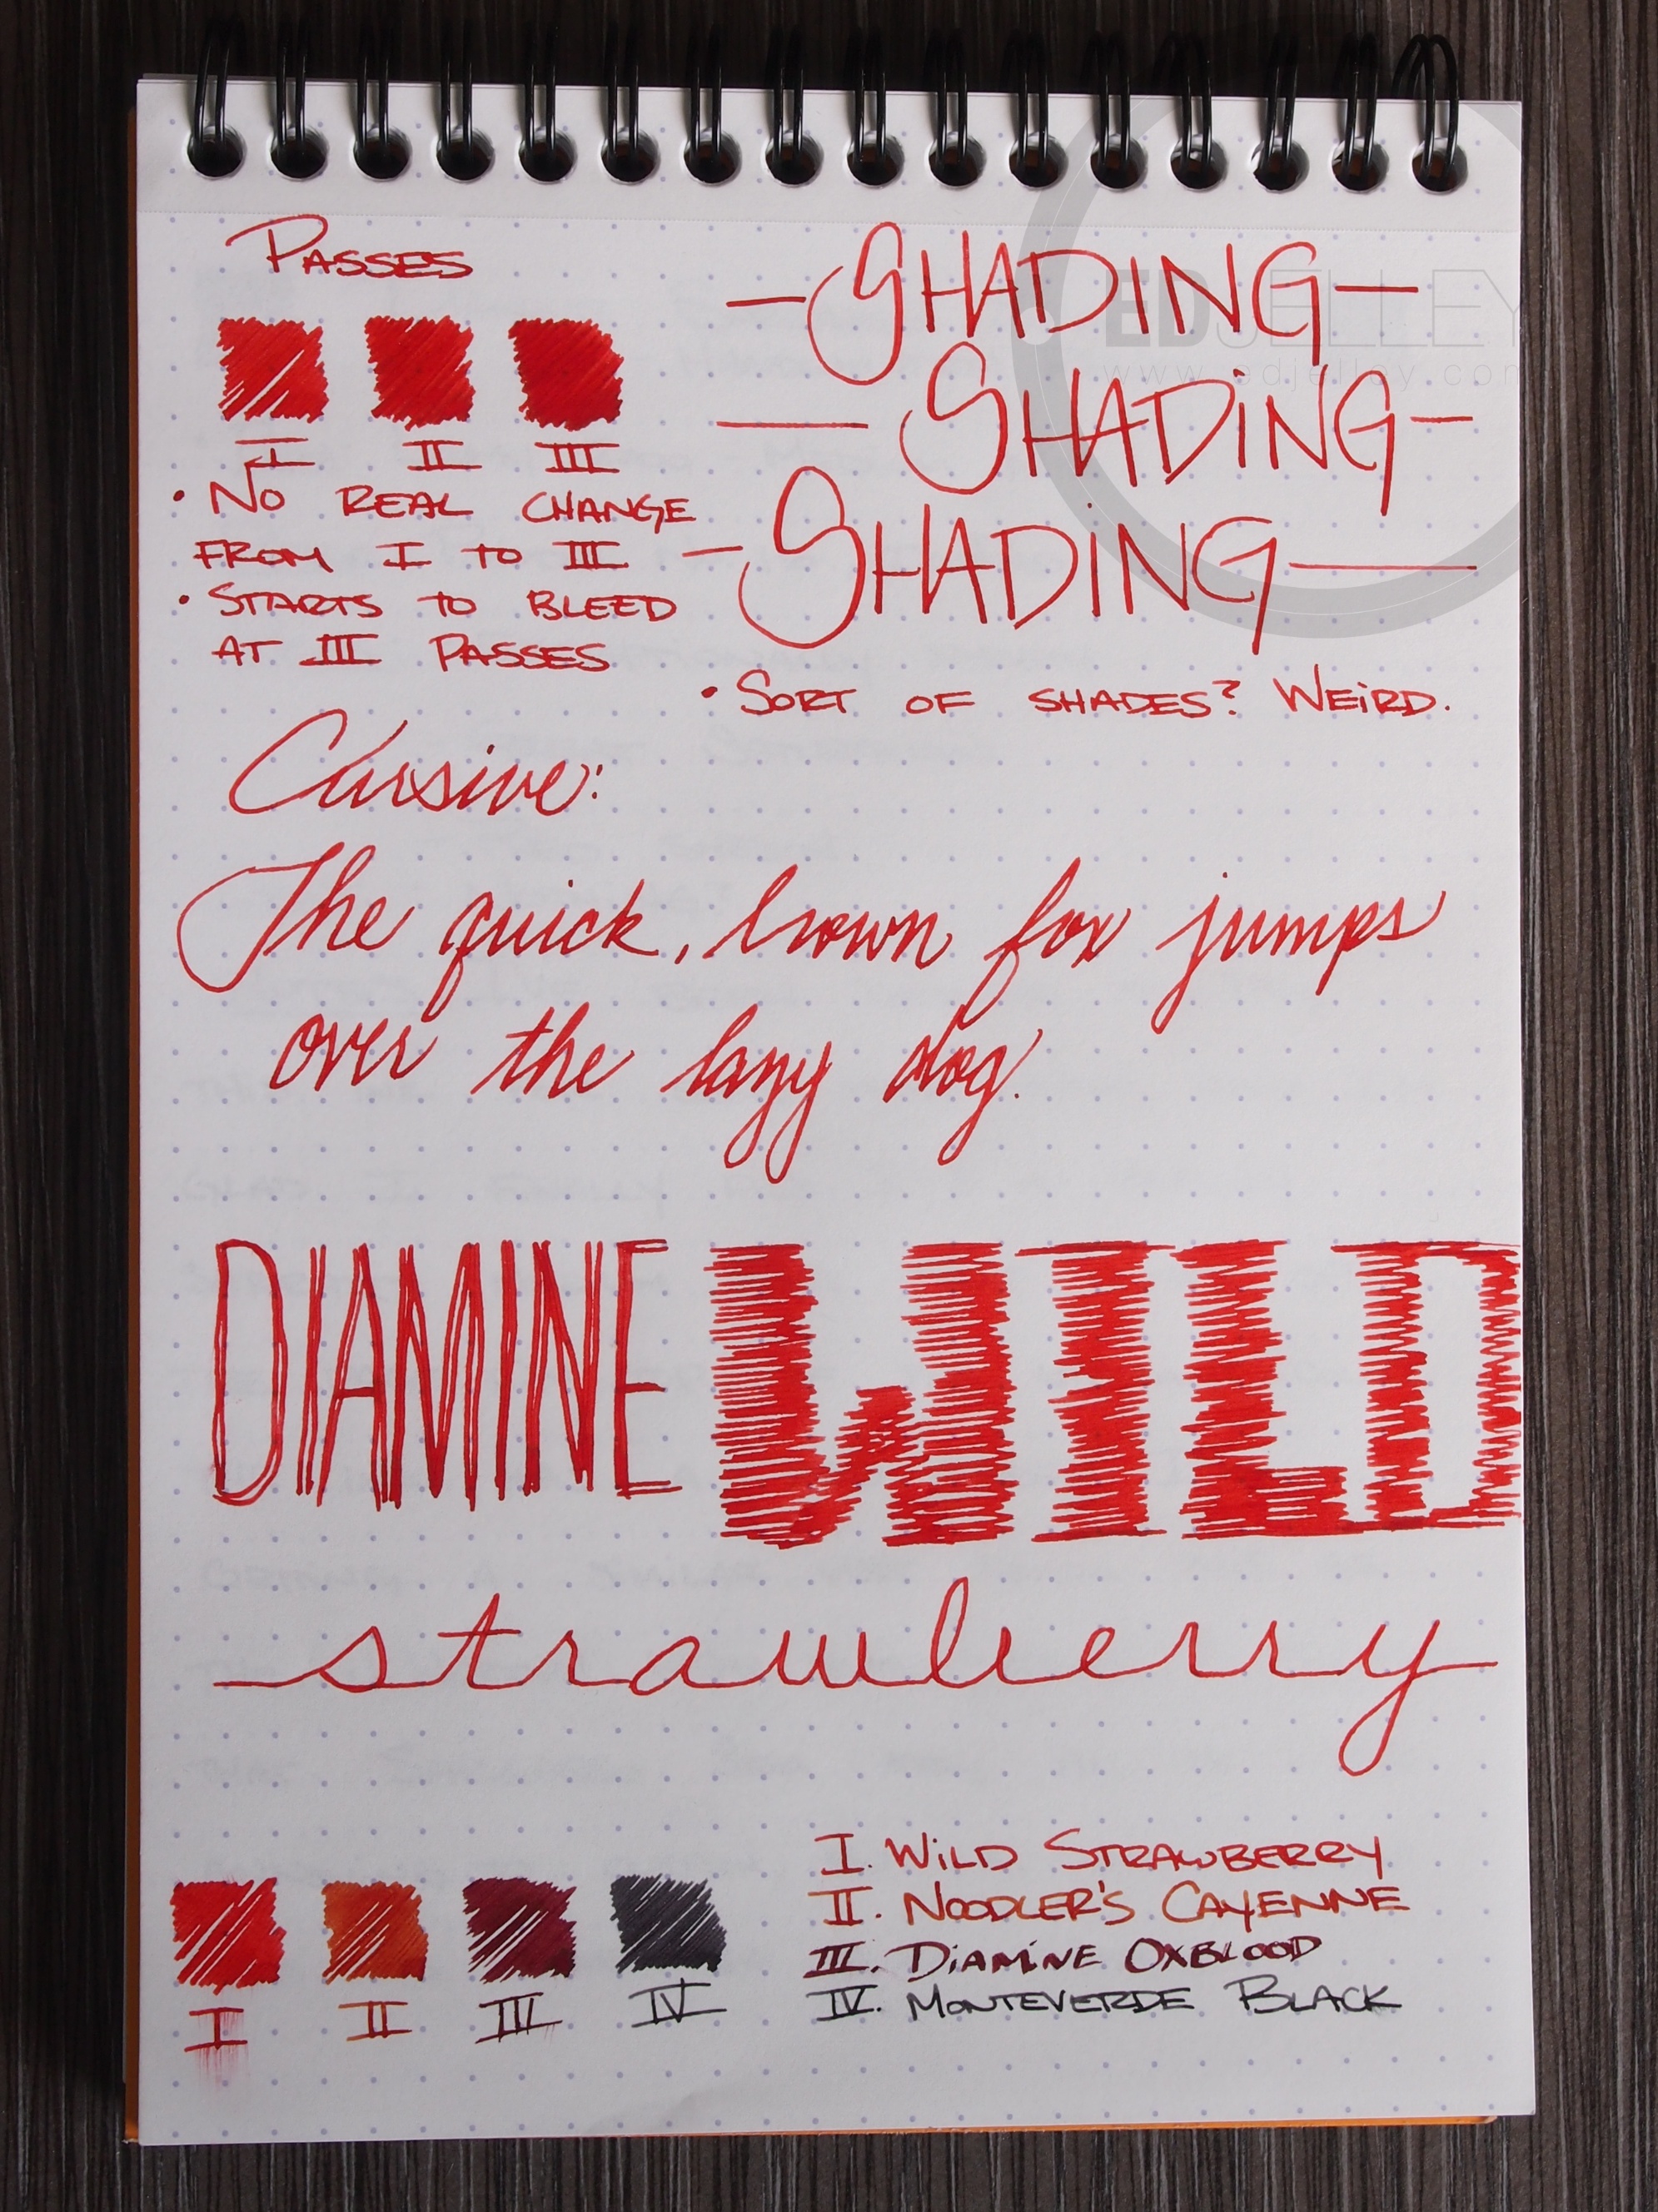 PASSES
I II III
• NO REAL CHANGE
FROM I TO III
• STARTS TO BLEED
AT III PASSES
—SHADING—
— SHADiNG—
—SHADiNG—
• SORT OF SHADES? WEiRD.
EDJELLEY
www.edjelley.com
Cursive:
The quick, brown fox jumps
over the lazy dog.
DIAMINE WILD
strawberry
I II III IV
I. WiLD STRAWBERRY
II. NOODLER'S CAYENNE
III. DiAMiNE OXBLOOD
IV. MONTEVERDE BLACK